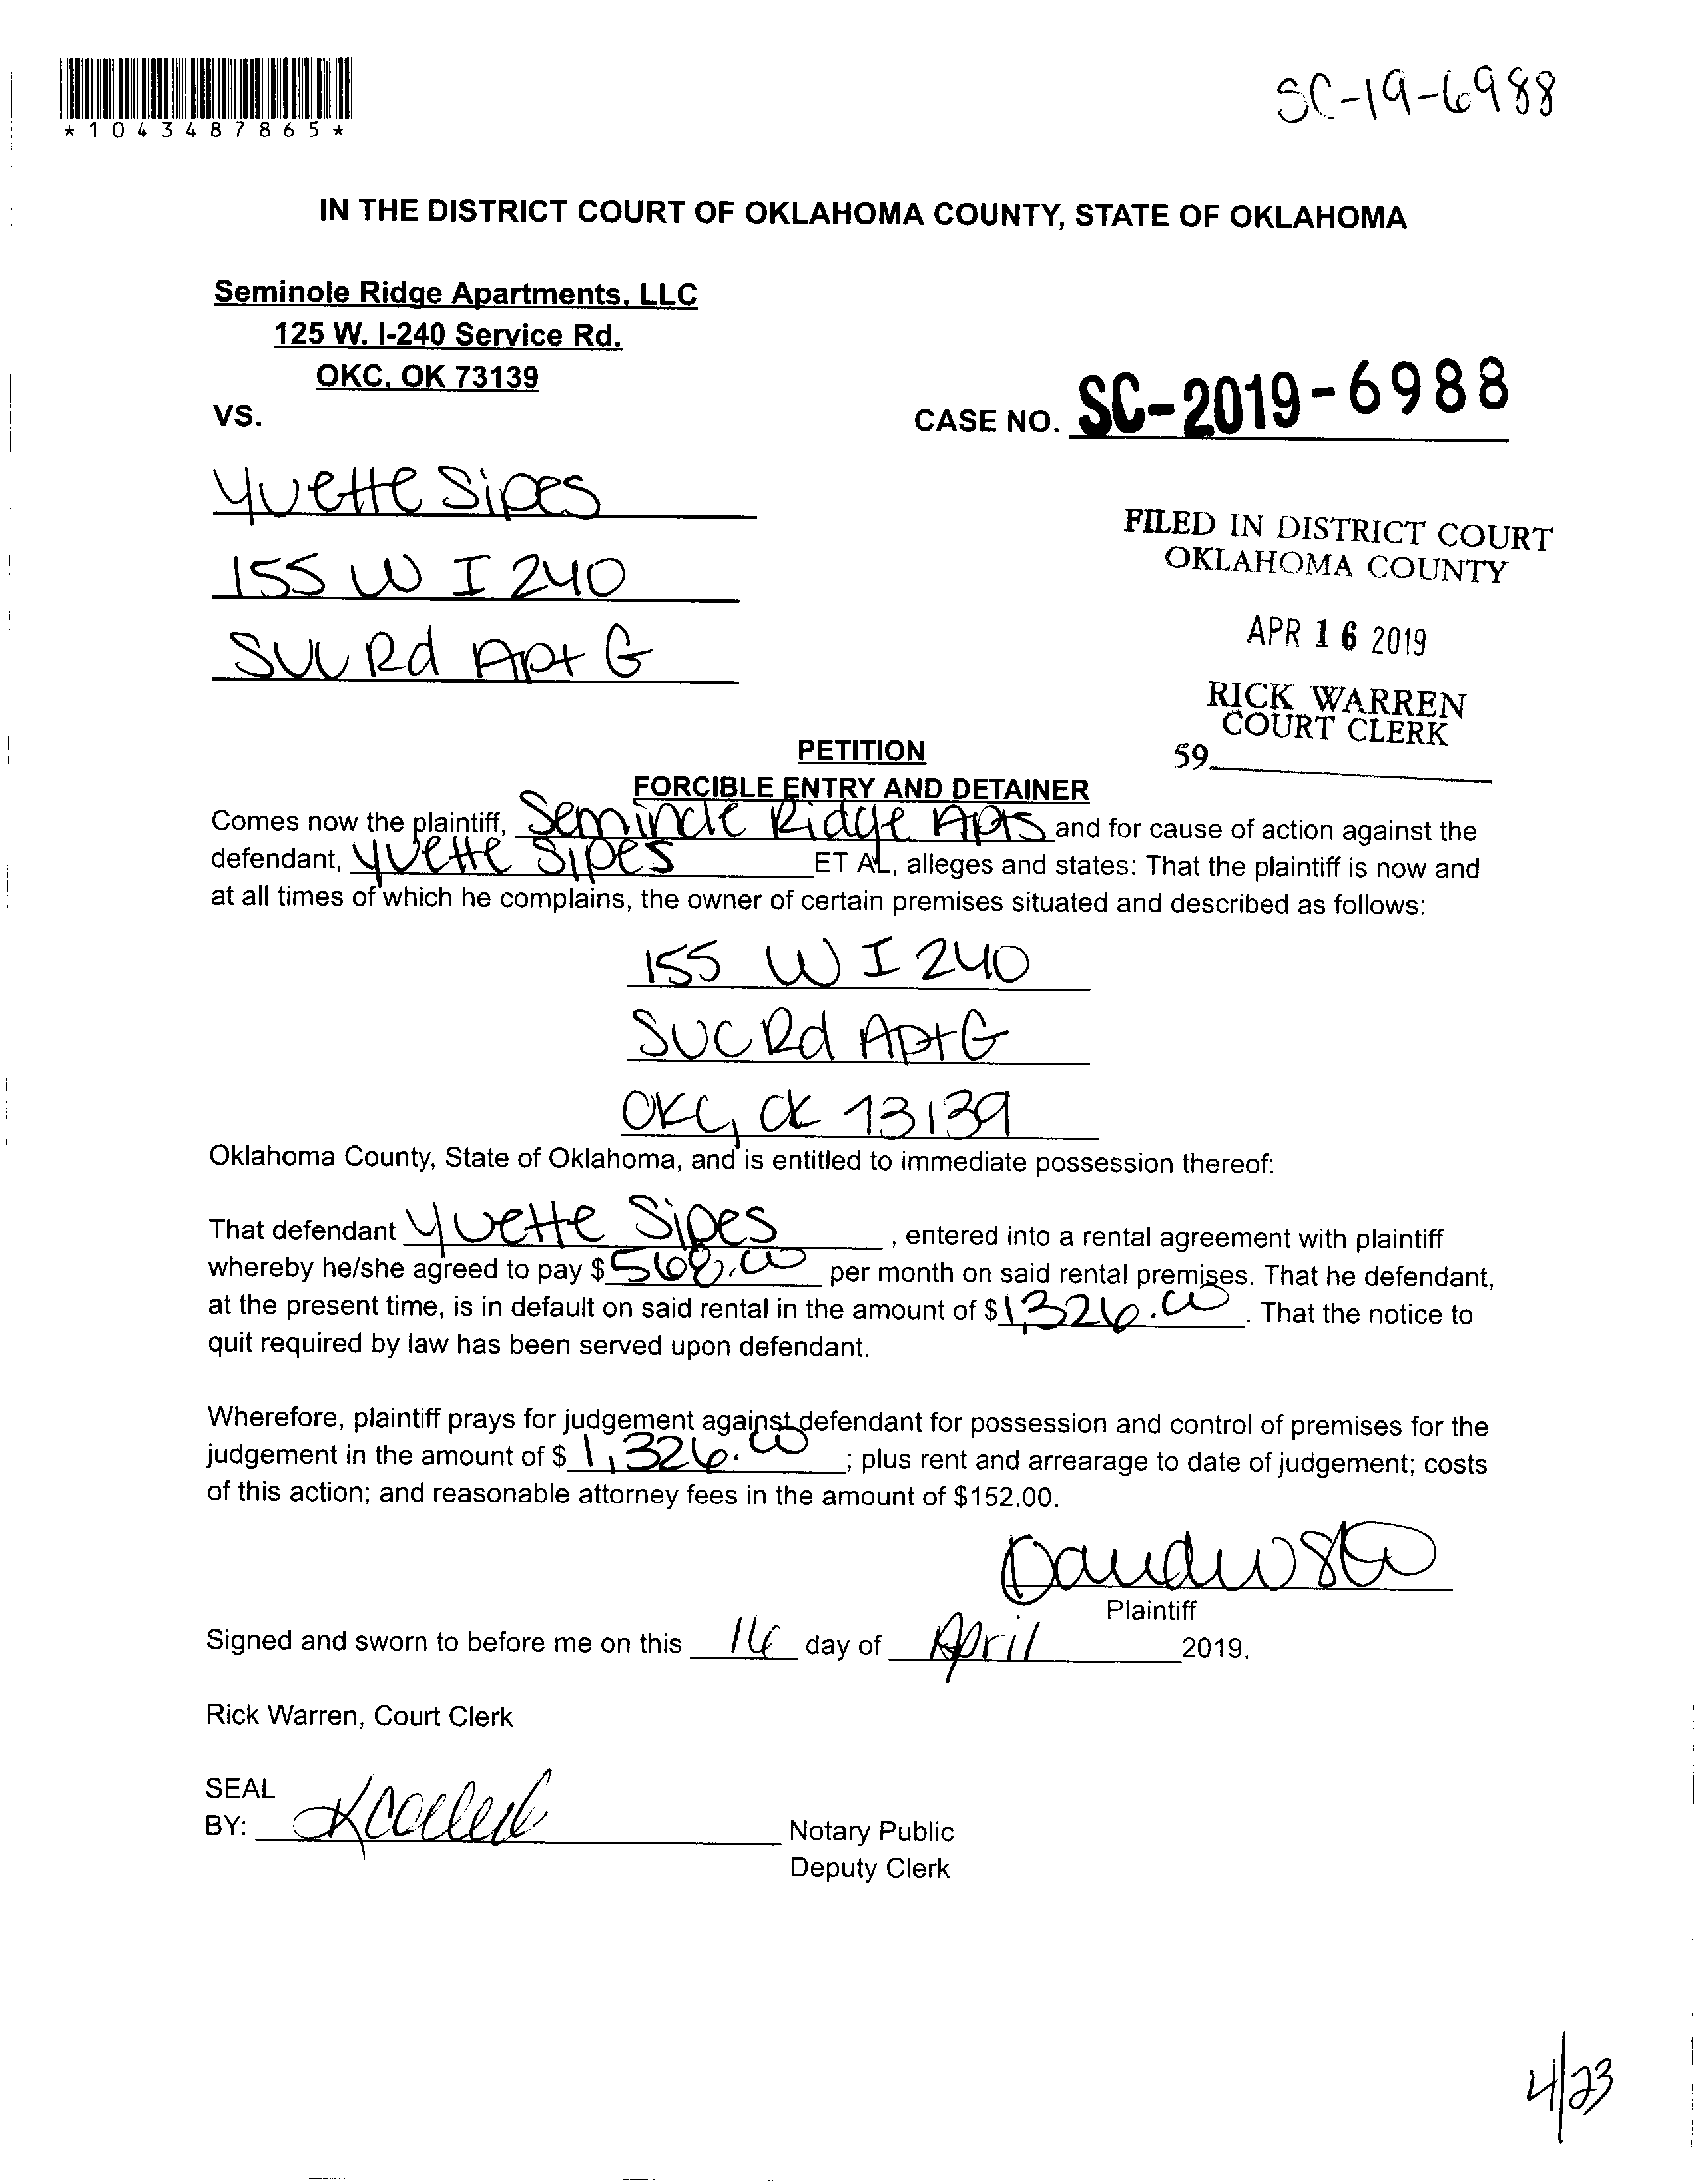 *1043487865*
SC-19-6988
IN THE DISTRICT COURT OF OKLAHOMA COUNTY, STATE OF OKLAHOMA
Seminole Ridge Apartments, LLC
125 W. I-240 Service Rd.
OKC, OK 73139
VS.
CASE NO. SC-2019-6988
Yvette Sipes
155 W I 240
Rd Apt G
FILED IN DISTRICT COURT
OKLAHOMA COUNTY
APR 16 2019
RICK WARREN
COURT CLERK
59
PETITION
FORCIBLE ENTRY AND DETAINER
Comes now the plaintiff, Seminole Ridge Apts and for cause of action against the
defendant, Yvette Sipes ET AL, alleges and states: That the plaintiff is now and
at all times of which he complains, the owner of certain premises situated and described as follows:
155 W I 240
SVC Rd Apt G
OKC, OK 73139
Oklahoma County, State of Oklahoma, and is entitled to immediate possession thereof:
That defendant Yvette Sipes , entered into a rental agreement with plaintiff
whereby he/she agreed to pay $ 568.00 per month on said rental premises. That he defendant,
at the present time, is in default on said rental in the amount of $ 1,326.00 . That the notice to
quit required by law has been served upon defendant.
Wherefore, plaintiff prays for judgement against defendant for possession and control of premises for the
judgement in the amount of $ 1,326.00 ; plus rent and arrearage to date of judgement; costs
of this action; and reasonable attorney fees in the amount of $152.00.
Plaintiff
Signed and sworn to before me on this 16 day of April 2019.
Rick Warren, Court Clerk
SEAL
BY:
Notary Public
Deputy Clerk
4/23